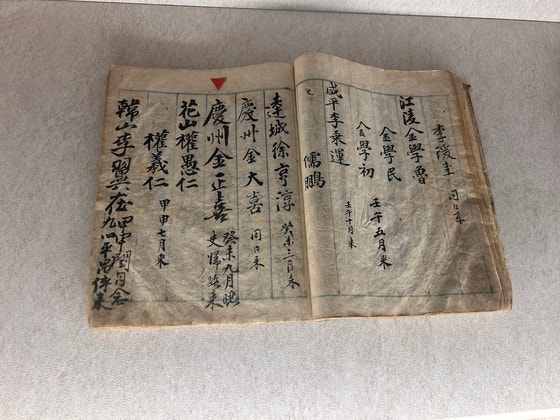 李
同日来
江陵金學曾
金學民
壬午五月来
仝學初
壬午十月来
咸平李乗運
儒鵬
達城徐亨淳
癸未三月来
慶州金大喜
同日来
慶州金正喜
癸未九月晩
花山權愚仁
權義仁
甲申七月来
韓山李翼在